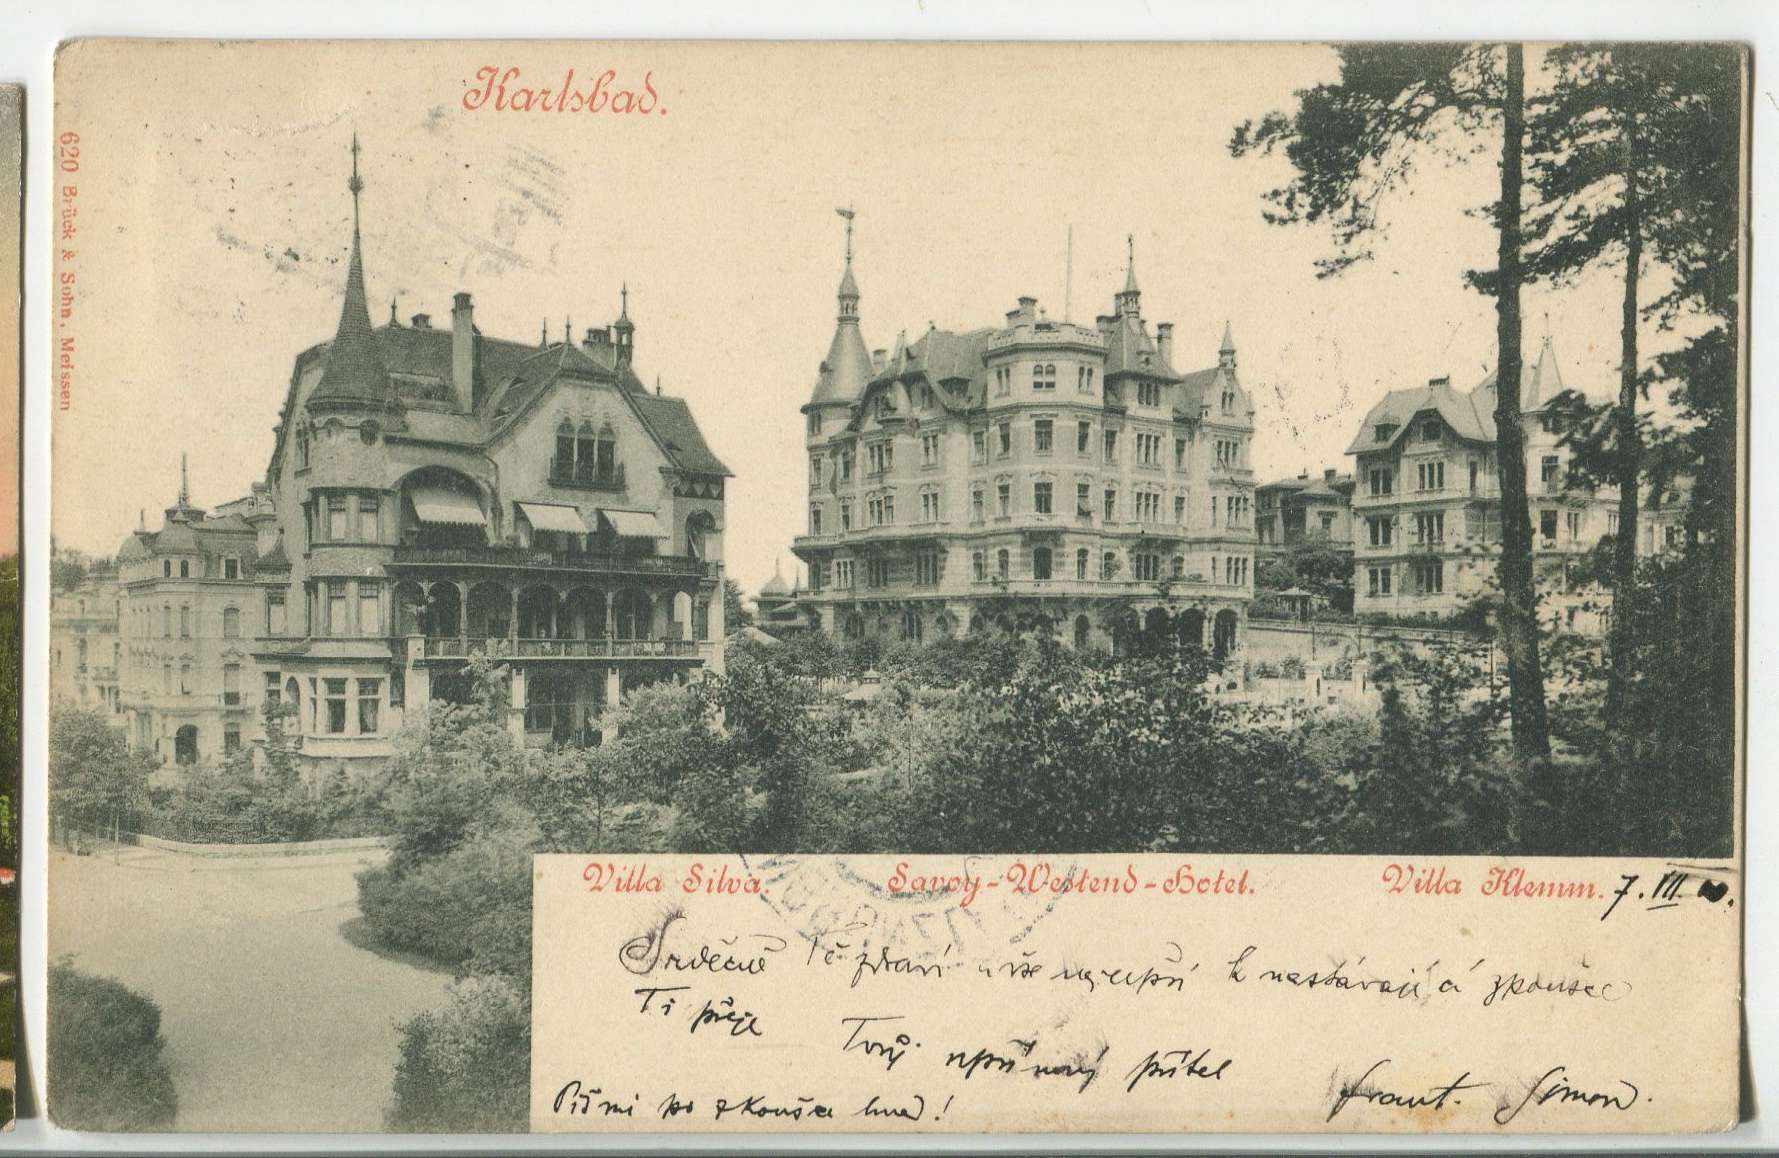 Karlsbad.
620 Brück & Sohn, Meissen
Villa Silva. Savoy-Westend-Hotel. Villa Klemm.
7. VII.
Srdečně Tě zdraví a vše nejlepší k nastávající zkoušce
Ti přeje
Tvůj upřímný přítel
Frant. Simon.
Piš mi po zkoušce hned!